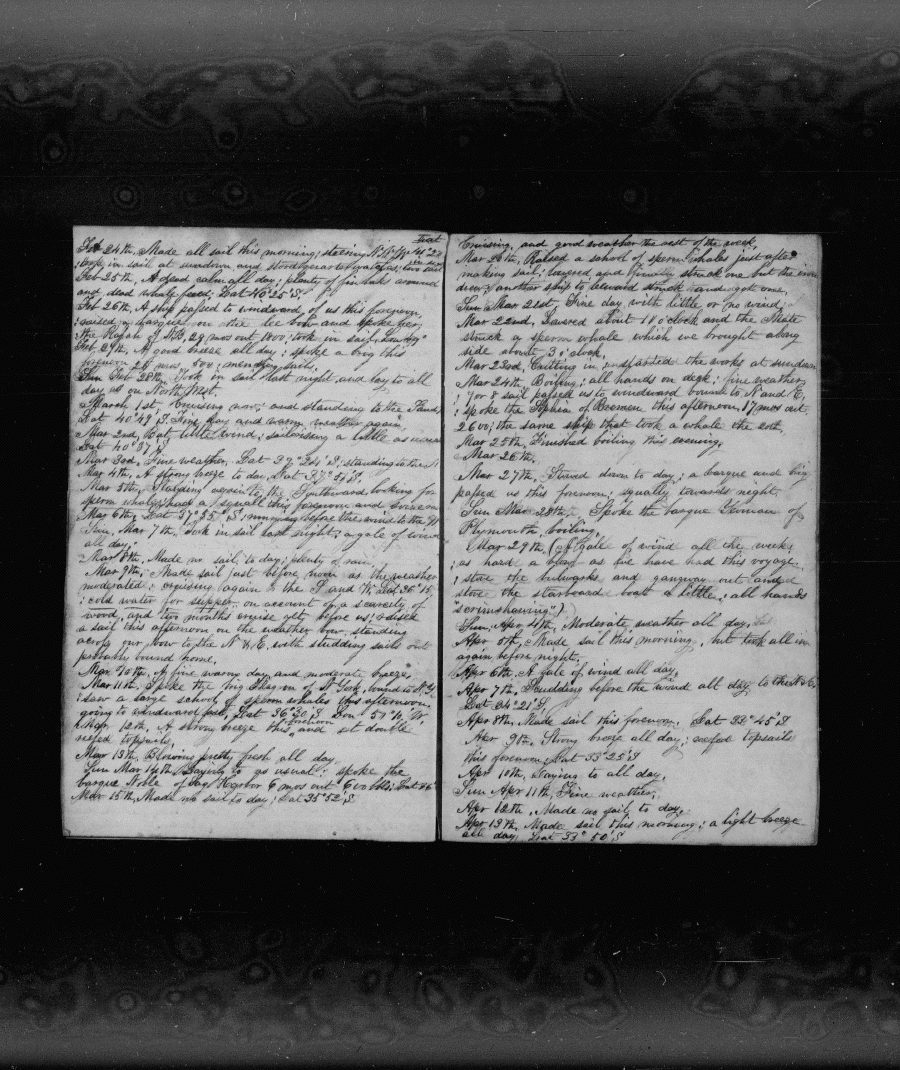 Lat
Feb 24th, Made all sail this morning; steering N.N.W. 41° 2
took in sail at sundown and
Feb 25th, A dead calm all day; plenty of finback around
and dead whale feed; Lat 40° 25' S
Feb 26th, A ship passed to windward of us this forenoon,
; raised a barque on the lee bow and spoke her;
the of N.B, 29 mos out 1800; took in sail,
Feb 27th, A good breeze all day; spoke a brig this
forenoon 20 mos 500; mending sails,
Sun Feb 28th, Took in sail last night, and lay to all
day as on North West,
March 1st Cruising now; and standing to the
Lat 40° 49' S. Fine day and warm weather again.
Mar 2nd, But little wind; a little as usual
Lat 40° 37' S
Mar 3rd, Fine weather, Lat 39° S; standing to the
Mar 4th, A strong breeze to day, Lat S,
Mar 5th, Standing again to the Southward, looking for
sperm whales; had a squall this forenoon and
Mar 6th, Lat 37° S; running before the wind to the N
Sun, Mar 7th, Took in sail last night; a gale of wind
all day,
Mar 8th, Made no sail to day; plenty of rain,
Mar 9th, Made sail just before noon as the weather
moderated; cruising again to the S and W, Lat 36° 15,
; cold water for supper on account of a scarcity of
wood, and two months cruise yet before us; raised
a sail this afternoon on the weather bow, standing
across our bow to the N & E with studding sails out
probably bound home,
Mar 10th, A fine warm day, and moderate breeze,
Mar 11th, Spoke the brig of N York, bound to N.Y.
; saw a large school of sperm whales this afternoon,
going to windward fast, Lat 36° 30' S Lon 51° W,
forenoon
Mar 12th, A strong breeze this, and set double
reefed topsails,
Mar 13th, Blowing pretty fresh all day,
Sun Mar 14th, Laying to as usual; spoke the
barque Noble of Sag Harbor 6 mos out 600 bbls; Lat
Mar 15th, Made no sail to day; Lat 35° 52' S
Cruising, and good weather the rest of the week,
Mar 20th, Raised a school of sperm whales just after
making sail; lowered and finally struck one but the iron
drew; another ship to leward struck and got one,
Sun Mar 21st, Fine day with little or no wind,
Mar 22nd, Lowered about 10 o'clock and the Mate
struck a sperm whale which we brought along
side about 3 o'clock,
Mar 23rd Cutting in, started the works at sundown
Mar 24th, Boiling; all hands on deck; fine weather
; 7 or 8 sail passed us to windward bound to N and E,
; spoke the Sophia of Bremen this afternoon, 17 mos out
2600; the same ship that took a whale the 20th,
Mar 25th, Finished boiling this evening,
Mar 26th,
Mar 27th, Stowed down to day; a barque and brig
passed us this forenoon; squally towards night
Sun Mar 28th, Spoke the barque Yeoman of
Plymouth, boiling,
Mar 29th, (A Gale of wind all the week;
; as hard a blow as we have had this voyage
; stove the bulwarks and gangway out and
stove the starboard boat a little; all hands
"scrimshawing")
Sun, Apr 4th, Moderate weather all day,
Apr 5th, Made sail this morning, but took all in
again before night,
Apr 6th, A gale of wind all day,
Apr 7th, Scudding before the wind all day to the N & E,
Lat 34° 21' S,
Apr 8th, Made sail this forenoon, Lat 33° 45' S
Apr 9th, Strong breeze all day; reefed topsails
this forenoon; Lat 33° 25' S
Apr 10th, Laying to all day,
Sun, Apr 11th, Fine weather,
Apr 12th, Made no sail to day,
Apr 13th, Made sail this morning; a light breeze
all day Lat 33° 50' S